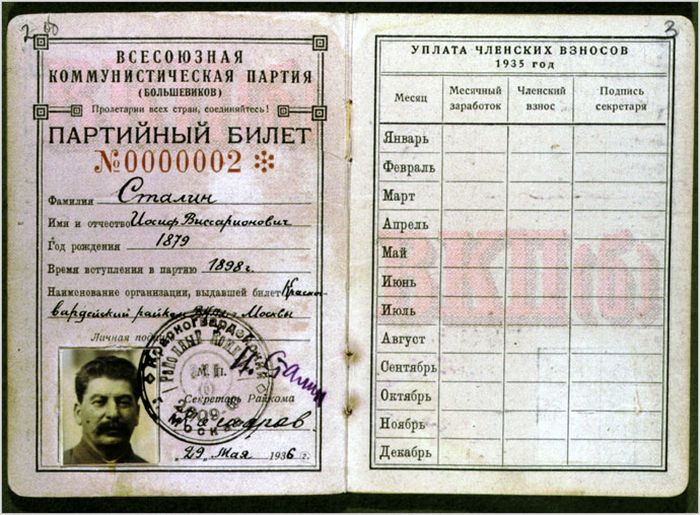 2
3
ВСЕСОЮЗНАЯ
КОММУНИСТИЧЕСКАЯ ПАРТИЯ
(БОЛЬШЕВИКОВ)
Пролетарии всех стран, соединяйтесь!
ПАРТИЙНЫЙ БИЛЕТ
№0000002
Фамилия Сталин
Имя и отчество Иосиф Виссарионович
Год рождения 1879
Время вступления в партию 1898 г.
Наименование организации, выдавшей билет Красно-
вардейский райком ВКП(б) Москвы
Личная подпись
И. Сталин
М. П.
Секретарь Райкома
"29" Мая 1936 г.
Красногвардейский
Районный
МОСКВ
УПЛАТА ЧЛЕНСКИХ ВЗНОСОВ
1935 год
Месяц Месячный заработок Членский взнос Подпись секретаря
Январь
Февраль
Март
Апрель
Май
Июнь
Июль
Август
Сентябрь
Октябрь
Ноябрь
Декабрь
ВКП(б)